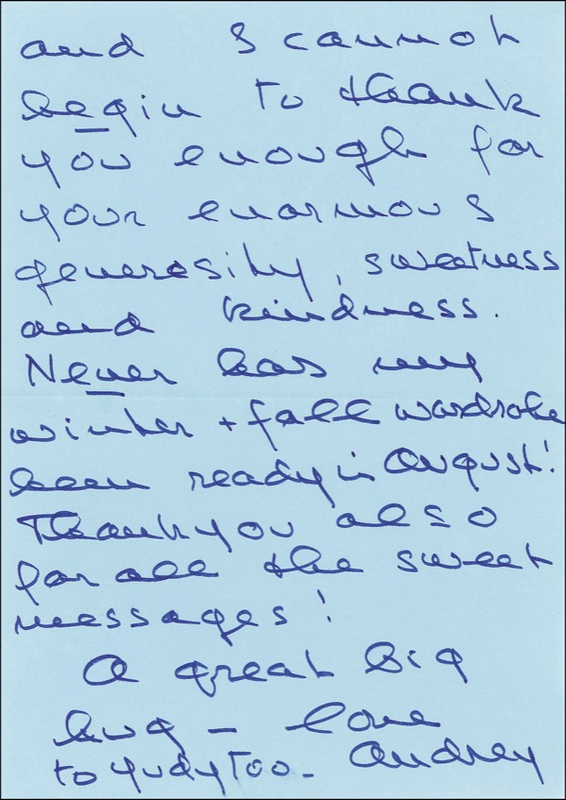 and I cannot
begin to thank
you enough for
your enormous
generosity, sweetness
and kindness.
Never has my
winter + fall wardrobe
been ready in August!
Thank you also
for all the sweet
messages!
A great big
hug - love
to Judy too. Audrey